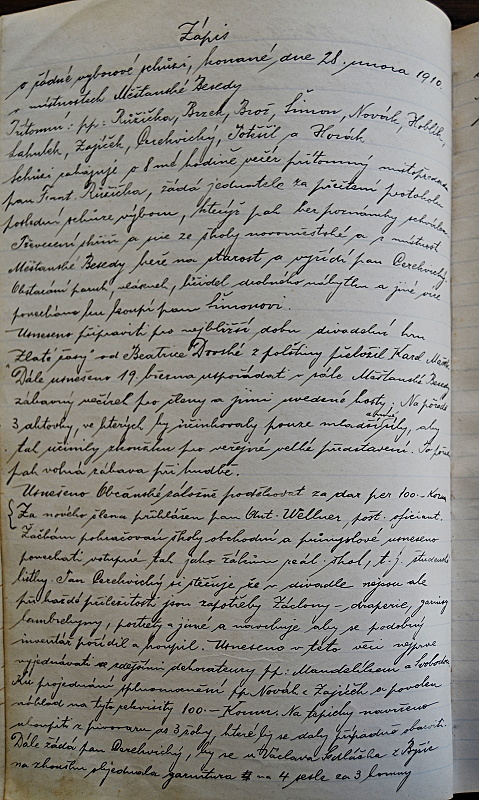 Zápis
o řádné výborové schůzi, konané dne 28. února 1910.
v místnostech Měšťanské Besedy
Přítomni: pp: Růžička, Brzek, Brož, Šimon, Novák, Hoblík,
Zajíček, Cerekvický, Potěšil a Horák.
Schůzi zahajuje o 8mé hodině večer přítomný místopředseda
pan Frant. Růžička, žádá jednatele za přečtení protokolu
poslední schůze výboru, kterýž pak bez poznámky schválen.
Převezení skříň a sice ze školy novoměstské a z místnost
Měšťanské Besedy beře na starost a vyřídí pan Cerekvický.
Obstarání paruk, drobného nábytku a jiné více
ponecháno ku koupi panu Šimonovi.
Usneseno připraviti pro nejbližší dobu divadelní hru
"Zlaté časy" od Beatrice z polštiny přeložil Karel
Dále usneseno 19. března uspořádati v sále Měšťanské Besedy
zábavný večírek pro členy a jimi uvedené hosty. Na pořadě
3 aktovky, ve kterých by účinkovaly pouze mladší síly, aby
tak učinily zkoušku pro veřejné velké představení. Po
pak volná zábava při hudbě.
Usneseno Občanské záložně poděkovat za dar per 100.- Korun.
Za nového člena přihlášen pan Ant. Wellner, pošt. oficient.
Žáčkům pokračovací školy obchodní a průmyslové usneseno
ponechati vstupné tak jako žákům reál. škol, t. j. studentské
lístky. Pan Cerekvický si stěžuje že v divadle nejsou ale
při každé příležitosti jsou zapotřeby Záclony - draperie, garnisy
lambrekyny, portéry a jiné a navrhuje aby se podobný
inventář pořídil a koupil. Usneseno v této věci nejprve
vyjednávati se zdejšími dekoratéry pp: Mandelíkem a Svobodou
Ku projednání splnomocněni pp. Novák a Zajíček a povolen
náklad na tyto rekvisity 100.- Korun. Na trpičky navrženo
z pivovaru as 3 soby, které by se daly případně obarviti.
Dále žádá pan Cerekvický, by se u Václava Sedláčka z
na zkoušku objednala garnitura na 4 sesle za 3 koruny